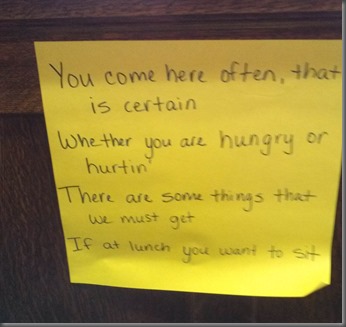 You come here often, that
is certain
Whether you are hungry or
hurtin'
There are some things that
we must get
If at lunch you want to sit